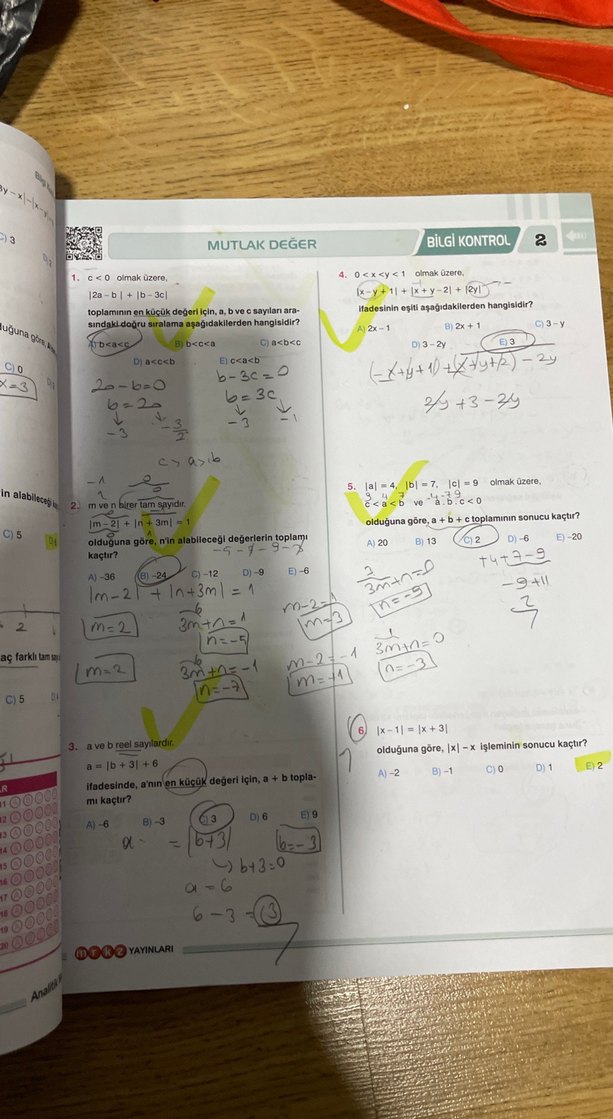 MUTLAK DEĞER
BİLGİ KONTROL 2
1. c < 0 olmak üzere,
|2a – b| + |b – 3c|
toplamının en küçük değeri için, a, b ve c sayıları ara-
sındaki doğru sıralama aşağıdakilerden hangisidir?
A) b<a<c B) b<c<a C) a<b<c
D) a<c<b E) c<a<b
2a-b=0
b=2a
-3 -3/2
b-3c=0
b=3c
-3 -1
c>a>b
2. m ve n birer tam sayıdır.
|m – 2| + |n + 3m| = 1
olduğuna göre, n'in alabileceği değerlerin toplamı
kaçtır?
-5-7-9-3
A) -36 B) -24 C) -12 D) -9 E) -6
|m-2| + |n+3m| = 1
m=2
3m+n=1
n=-5
m=2
3m+n=-1
n=-7
m=3
3m+n=0
n=-9
m-2=-1
m=+1
3m+n=0
n=-3
3. a ve b reel sayılardır.
a = |b + 3| + 6
ifadesinde, a'nın en küçük değeri için, a + b topla-
mı kaçtır?
A) -6 B) -3 C) 3 D) 6 E) 9
= |b+3|
b=-3
b+3=0
a=6
6-3=3
mrkz YAYINLARI
4. 0 < x < y < 1 olmak üzere,
|x – y + 1| + |x + y – 2| + |2y|
ifadesinin eşiti aşağıdakilerden hangisidir?
A) 2x – 1 B) 2x + 1 C) 3 – y
D) 3 – 2y E) 3
2y+3-2y
5. |a| = 4, |b| = 7, |c| = 9 olmak üzere,
c < a < b ve a . b . c < 0
olduğuna göre, a + b + c toplamının sonucu kaçtır?
A) 20 B) 13 C) 2 D) -6 E) -20
+4+7-9
-9+11
2
6. |x – 1| = |x + 3|
olduğuna göre, |x| – x işleminin sonucu kaçtır?
A) -2 B) -1 C) 0 D) 1 E) 2
C) 3
C) 0
x=3
in alabileceği
C) 5
2
aç farklı tam sayı
C) 5
11
12
13
14
15
16
17
18
19
20